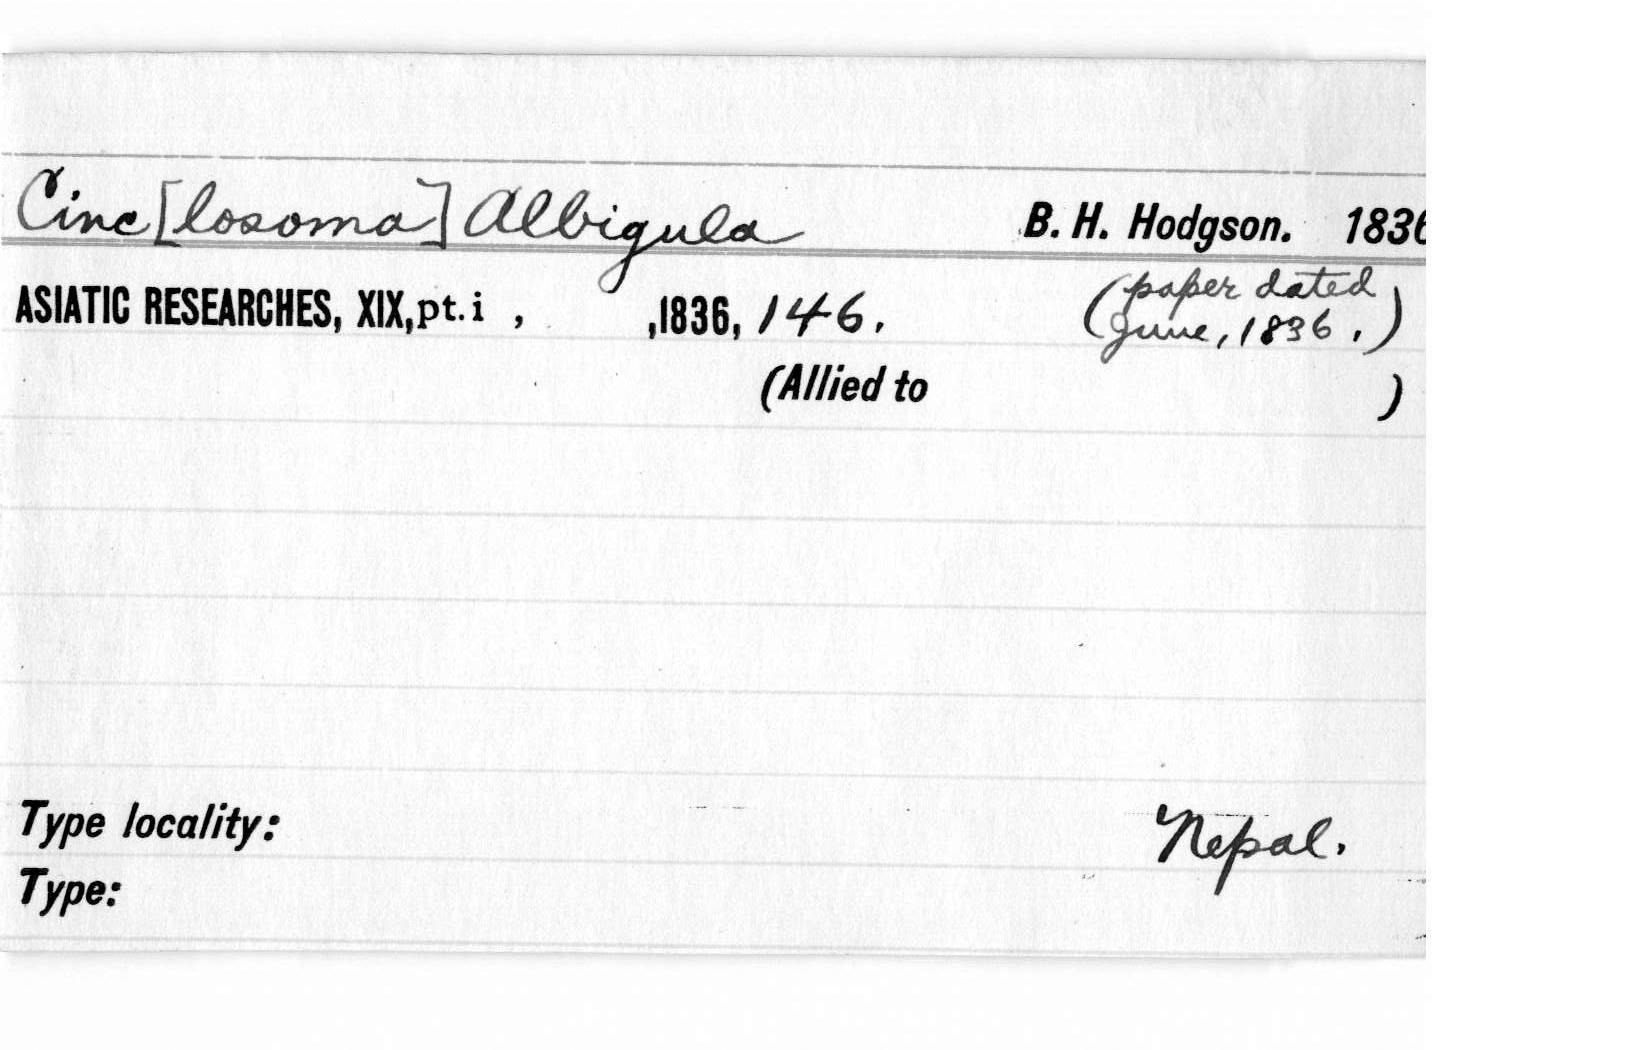 Cinc[losoma] Albigula B. H. Hodgson. 1836
ASIATIC RESEARCHES, XIX, pt. i , ,1836, 146. (paper dated
June, 1836.)
(Allied to )
Type locality: Nepal.
Type: